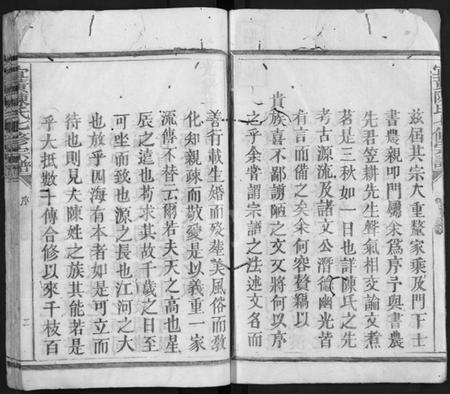 茲屆其宗人重鰲家乘及門下士
書農親叩門屬余爲序予與書農
先君笠耕先生聲氣相交論文煮
茗三秋如一日也詳陳氏之先
考古源流及諸文公潛德幽光昔
有言而備之矣余何容贅耦以
貴族喜不鄙謭陋之文又將何以序
之乎余嘗謂宗譜之法述文名而
善行載生婚而殁葬美風俗而教
化知親疎而敬愛是以義重一家
流傳不替云爾若夫天之高也星
辰之遠也苟求其故千歲之日至
可坐而致也源之長也江河之大
也放乎四海有本者如是可立而
待也則見夫陳姓之族其能若是
乎大抵數千傳合修以來千枝百
陳氏七修宗譜
序
二